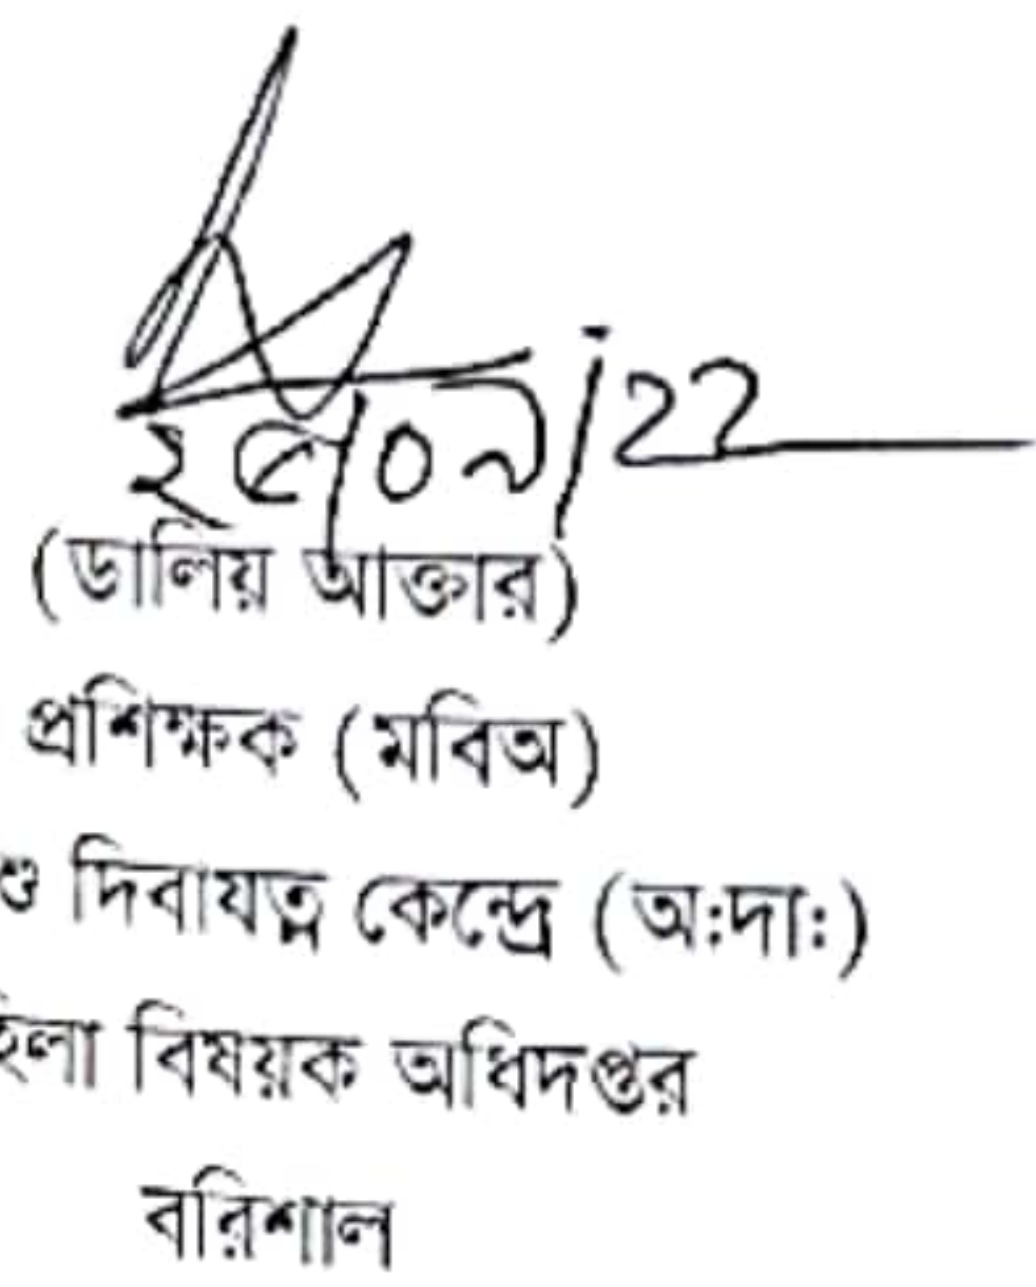 (ডালিয় আক্তার)
প্রশিক্ষক (মবিঅ)
শু দিবাযত্ন কেন্দ্রে (অ:দা:)
হিলা বিষয়ক অধিদপ্তর
বরিশাল